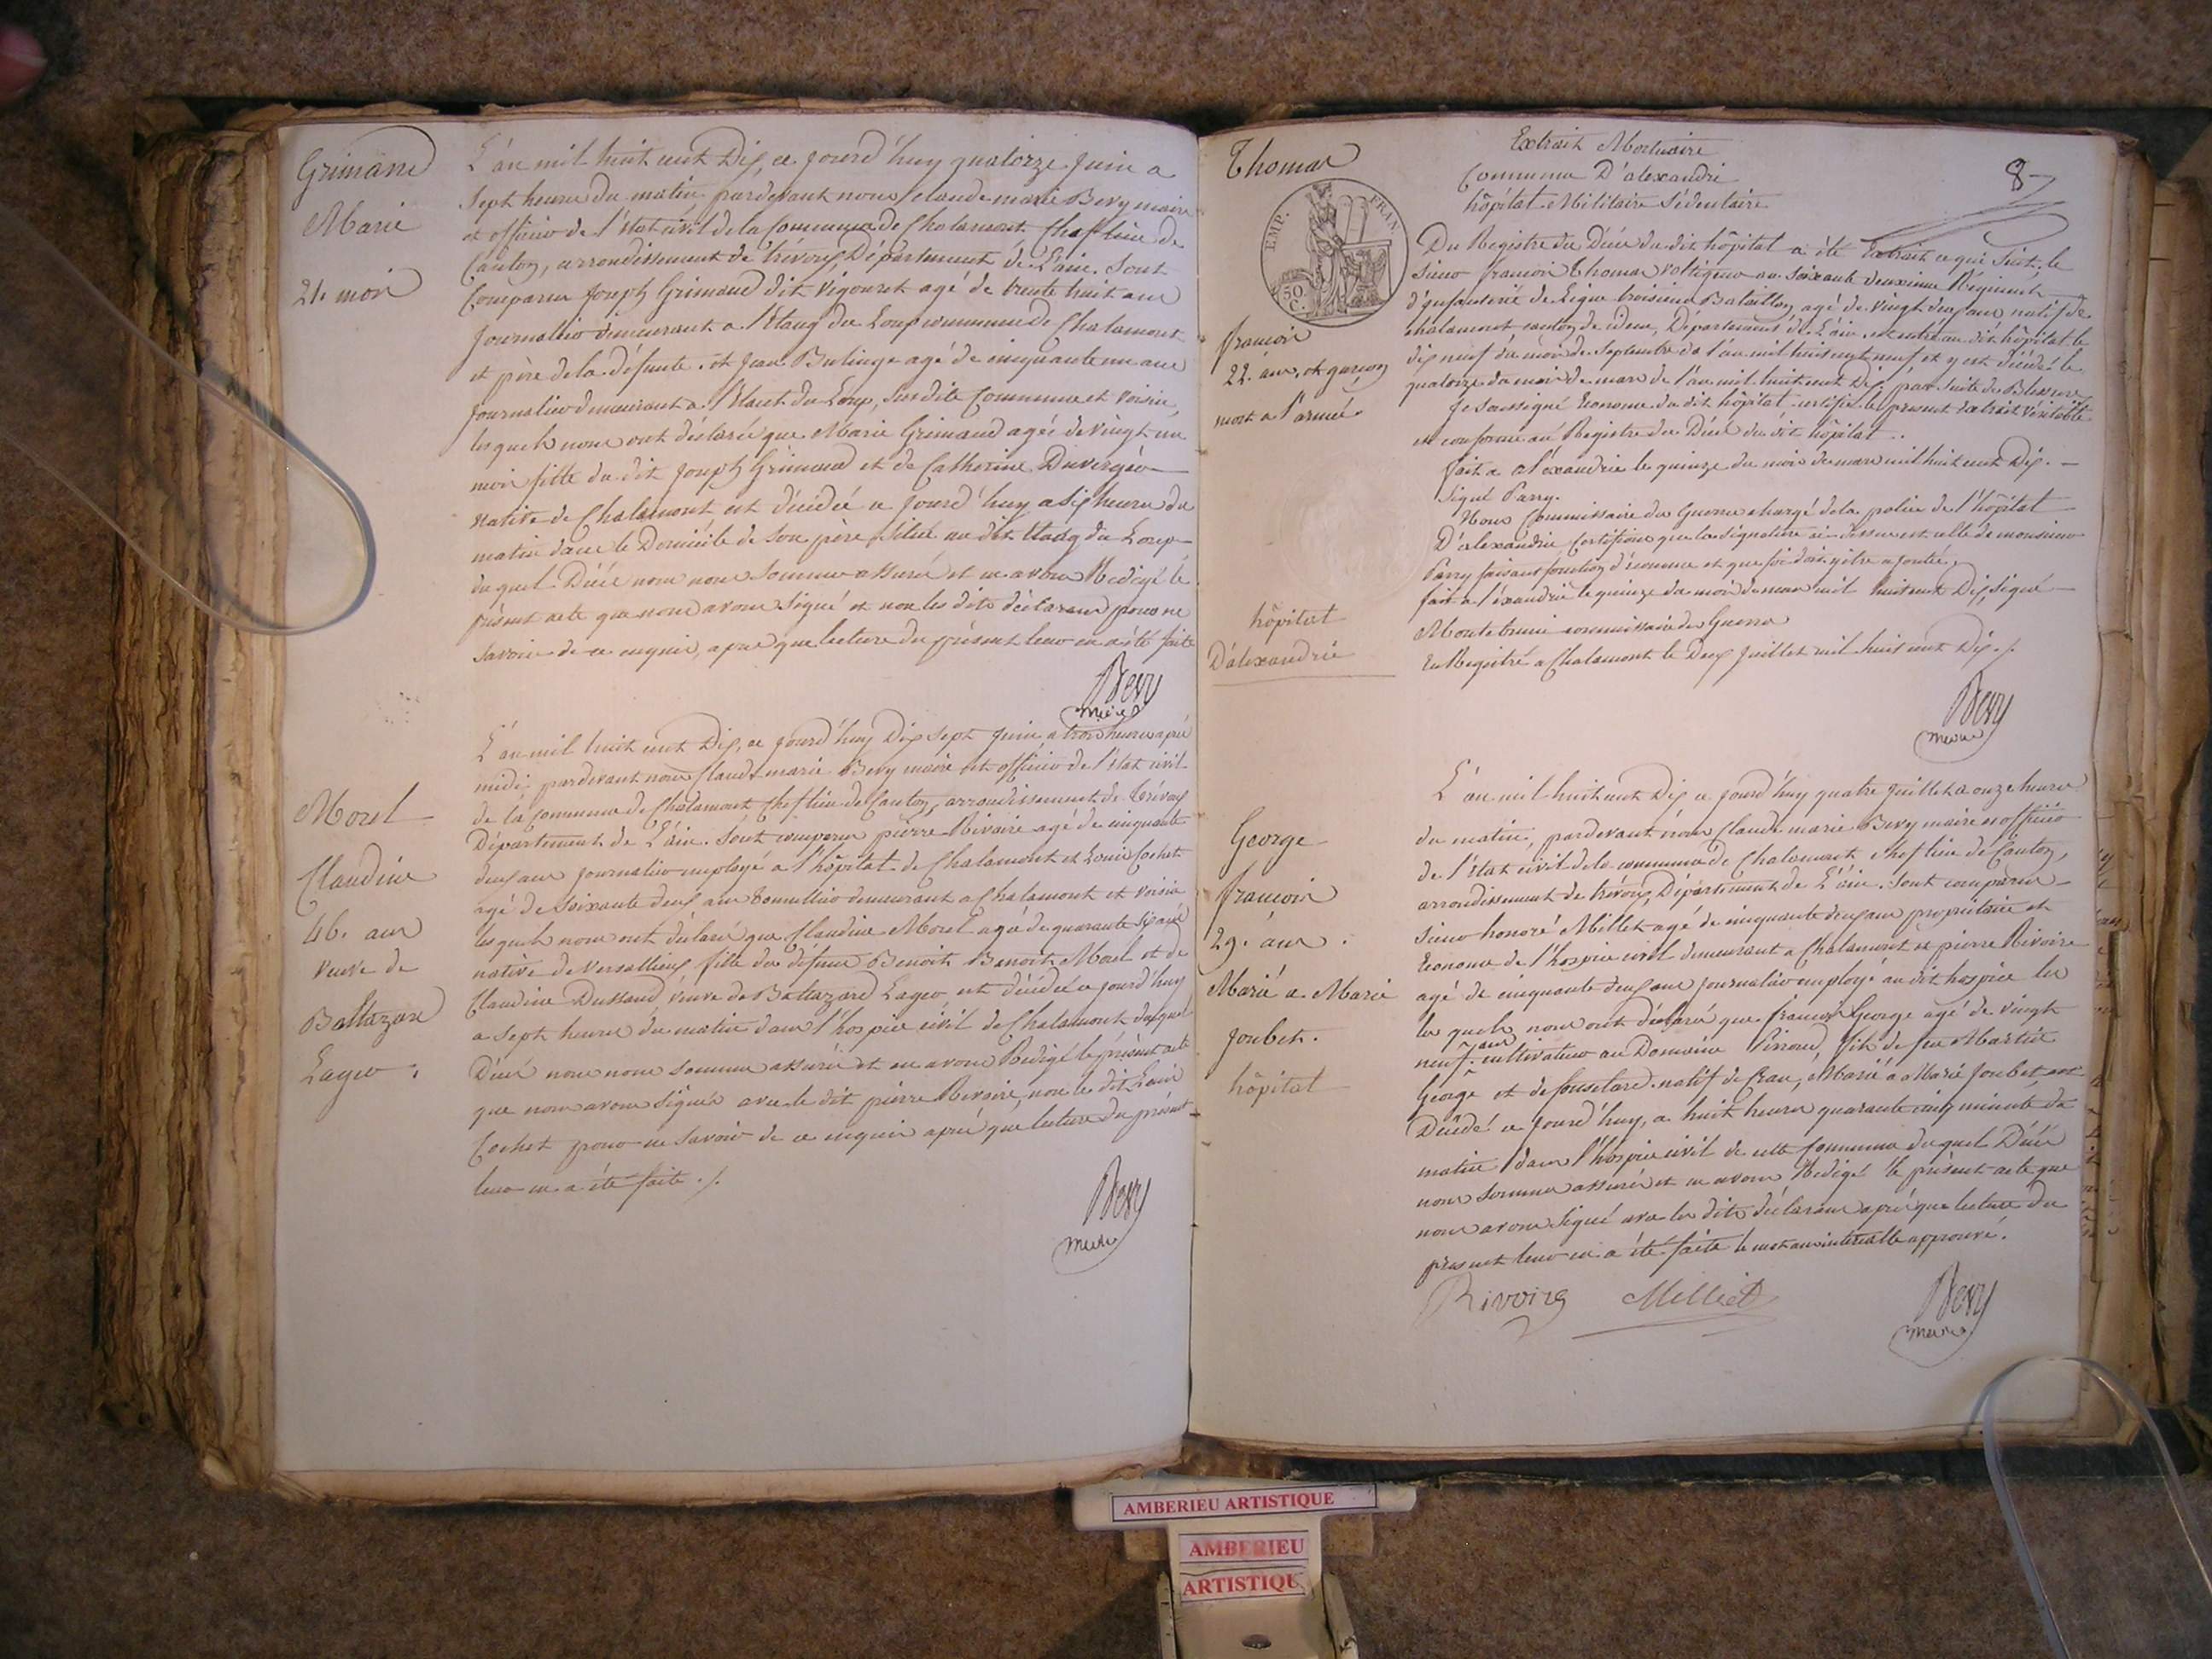 Grimaud
Marie
21. mois
L'an mil huit cent Dix, ce jourd'huy quatorze juin a
Sept heures du matin, pardevant nous Claude marie Bevy maire
et officier de l'état civil de la Commune de Chalamont Chef lieu de
Canton, arrondissement de trévoux, Département de L'ain. Sont
Comparus Joseph Grimaud dit vigouret agé de trente huit ans
journallier demeurant a l'Etang du Loup commune de Chalamont
et père de la défunte. et Jean Bulinge agé de cinquante un ans
journalier demeurant a l'Etant du Loup, susdite Commune et voisin,
lesquels nous ont déclarés que Marie Grimaud agée de vingt un
mois fille du dit Joseph Grimaud et de Catherine Duvergéo
native de Chalamont est décédée ce jourd'huy a six heures du
matin dans le Domicile de son père, situé au dit Etang du Loup
duquel Décé nous nous sommes assurés et en avons Redigé le
présent acte que nous avons signé et non les dits déclarans pour ne
savoir de ce enquis, après que lecture du présent leur en a été faite
Bevy
maire
Morel
Claudine
46. ans
veuve de
Baltazard
Lager.
L'an mil huit cent Dix, ce jourd'huy Dix Sept juin, a trois heures après
midi, pardevant nous Claude marie Bevy maire et officier de l'état civil
de la Commune de Chalamont Chef lieu de Canton, arrondissement de trévoux
Département de L'ain. Sont comparus pierre Rivoire agé de cinquante
deux ans journalier employé a l'hôpital de Chalamont et Louis Cochet
agé de soixante deux ans tonnellier demeurant a Chalamont et voisin
lesquels nous ont déclaré que Claudine Morel agée de quarante six ans
native de Versallieux fille du défunt Benoit Benoit Morel et de
Claudine Dussaud, veuve de Baltazard Lager est décédée ce jourd'huy
a sept heures du matin dans l'hospice civil de Chalamont duquel
Décé nous nous sommes assurés et en avons Redigé le présent acte
que nous avons signés avec le dit pierre Rivoire, non le dit Louis
Cochet pour ne savoir de ce enquis après que lecture du présent
leur en a été faite ./.
Bevy
maire
8
Thomas
EMP. FRAN.
50 C.
françois
22. ans, et garçon
mort a l'armée
hôpital
D'alexandrie
Extrait Mortuaire
Commune D'alexandrie
hôpital Militaire Sédentaire
Du Registre du Décé du dit hôpital a été Extrait ce qui suit, le
sieur françois Thomas voltigeur au soixante deuxieme Régiment
d'infanterie de Ligne troisieme Bataillon, agé de vingt deux ans natif de
chalamont canton de idem, Département de L'ain, est entré au dit hôpital le
dix neuf du mois de septembre de l'an mil huit cent neuf, et y est décédé le
quatorze du mois de mars de l'an mil huit cent Dix, par suite de Blessure
Je soussigné Econome du dit hôpital certifie le présent Extrait véritable
et conforme au Registre du Décé du dit hôpital.
fait a aléxandrie le quinze du mois de mars mil huit cent Dix. —
Signé Parry.
Nous Commissaire des Guerres chargé de la police de l'hôpital
D'alexandrie Certifions que la signature ci-dessus est celle de monsieur
Parry faisant fonction d'économe et que foi doit y être ajoutée,
fait a l'éxandrie le quinze du mois de mars mil huit cent Dix, signé —
commissaire des Guerres
Enregistré a Chalamont le Deux juillet mil huit cent Dix ./.
Bevy
maire
George
françois
29. ans.
Marié a Marie
Joubet.
hôpital
L'an mil huit cent Dix ce jourd'huy quatre juillet a onze heures
du matin, pardevant nous Claude marie Bevy maire et officier
de l'état civil de la commune de Chalamont, chef lieu de Canton,
arrondissement de trévoux, Département de L'ain. Sont comparus
sieur honoré Millet agé de cinquante deux ans propriétaire et
Econome de l'hospice civil demeurant a Chalamont et pierre Rivoire
agé de cinquante deux ans journalier employé au dit hospice les
les quels nous ont déclaré que françois George agé de vingt
neuf ans cultivateur au Domaine Pirroud, fils de feu Martin
George et de natif de Cran, Marié a Marie Joubet, est
Décédé ce jourd'huy, a huit heures quarante cinq minutes du
matin dans l'hospice civil de cette Commune duquel Décé
nous sommes assurés et en avons Redigé le présent acte que
nous avons signé avec les dits déclarans après que lecture du
présent leur en a été faite le mot ans interealle approuvé.
Rivoire Milliet
Bevy
maire
AMBERIEU ARTISTIQUE
AMBERIEU
ARTISTIQUE